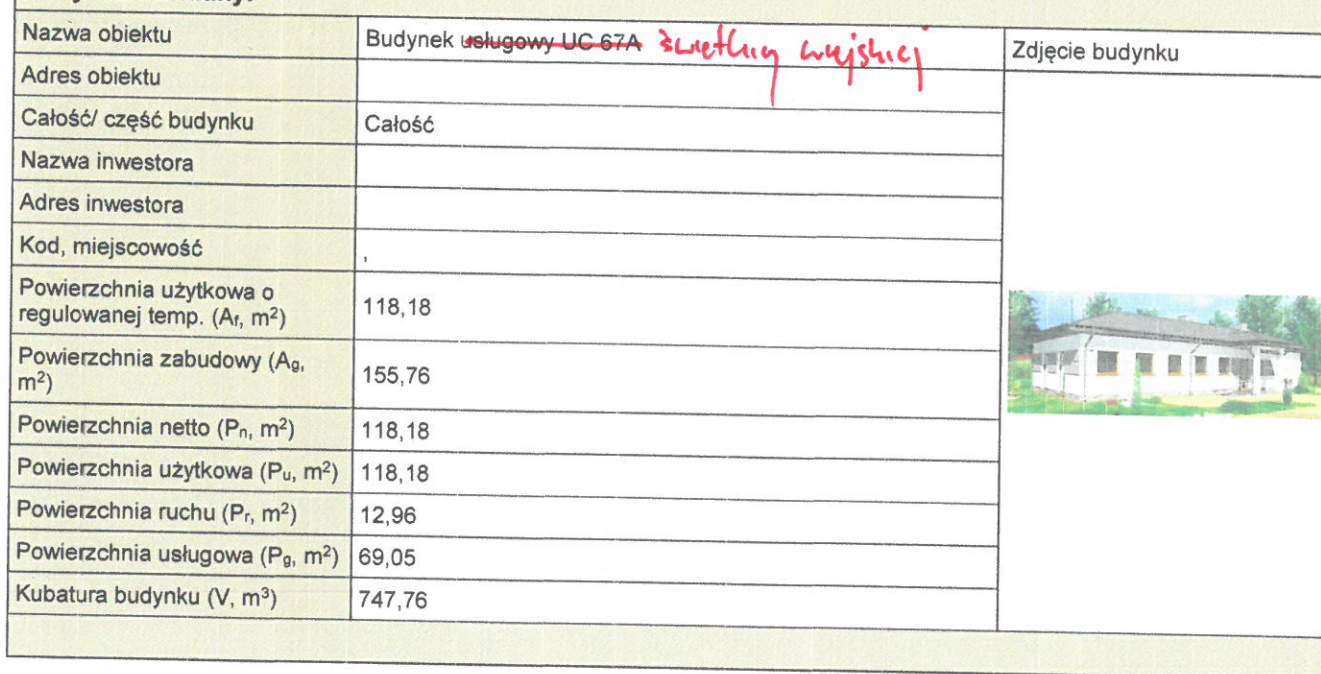 Nazwa obiektu
Budynek usługowy UC 67A świetlicy wiejskiej
Zdjęcie budynku
Adres obiektu
Całość/ część budynku
Całość
Nazwa inwestora
Adres inwestora
Kod, miejscowość
,
Powierzchnia użytkowa o
regulowanej temp. (Af, m²)
118,18
Powierzchnia zabudowy (Ag,
m²)
155,76
Powierzchnia netto (Pn, m²)
118,18
Powierzchnia użytkowa (Pu, m²)
118,18
Powierzchnia ruchu (Pr, m²)
12,96
Powierzchnia usługowa (Pg, m²)
69,05
Kubatura budynku (V, m³)
747,76